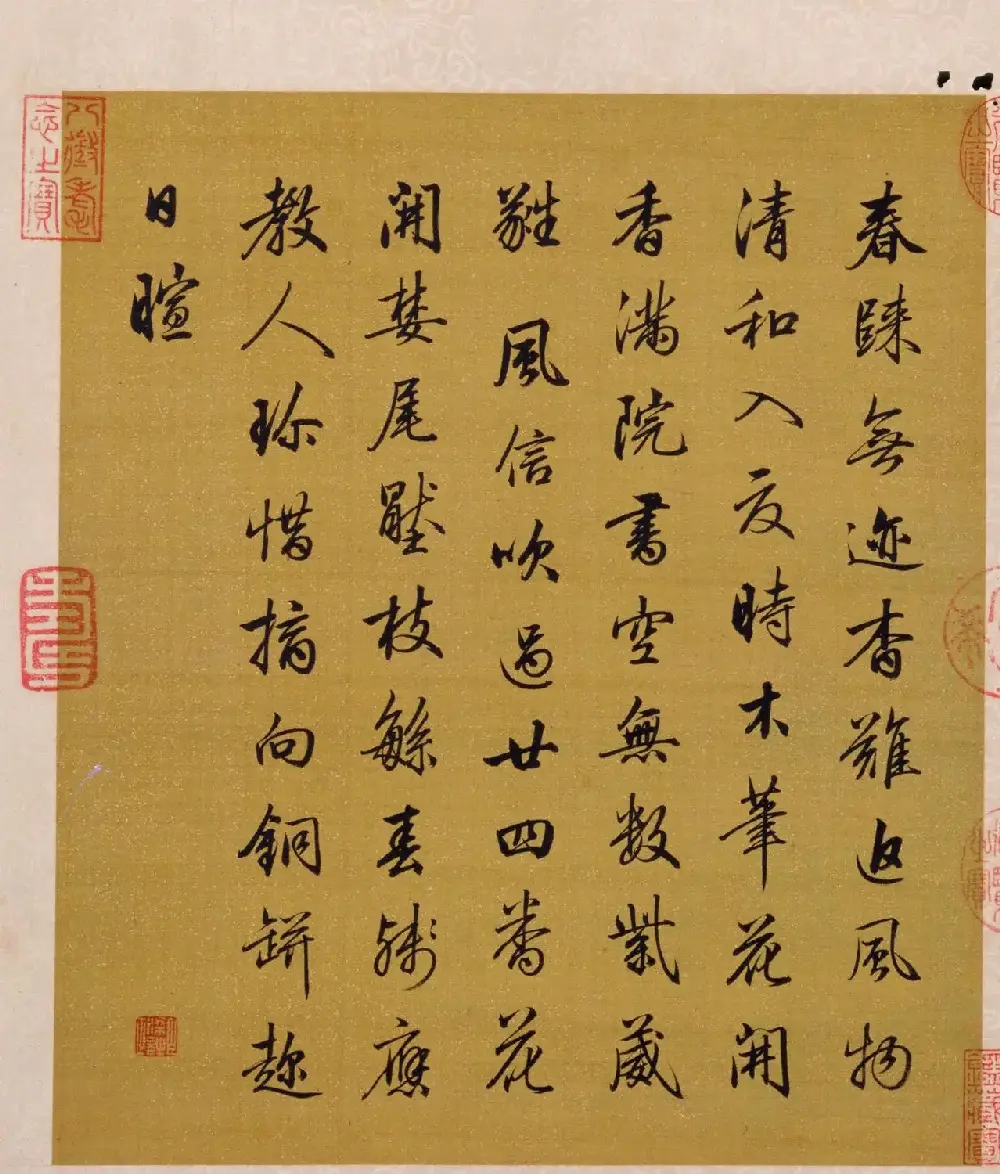 春歸無迹杳難追風物
清和入夏時木筆花開
香滿院書空無數紫葳
蕤風信吹過廿四番花
開婪尾壓枝繁春殘應
教人珍惜摘向銅缾趂
日暄
八徵耄
念之寶